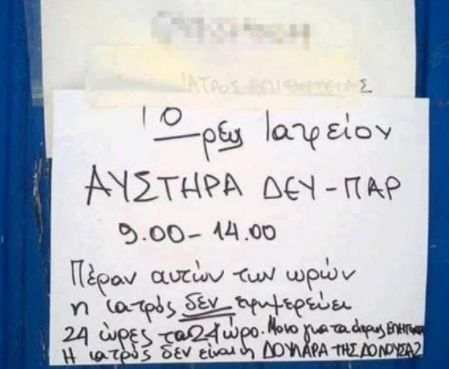 ΙΑΤΡΟΣ
Ώρες Ιατρείου
ΑΥΣΤΗΡΑ ΔΕΥ-ΠΑΡ
9.00-14.00
Πέραν αυτών των ωρών
η ιατρός δεν εφημερεύει
24 ώρες το 24ωρο. Μόνο για τα άκρως
Η ιατρός δεν είναι η ΔΟΥΛΑΡΑ ΤΗΣ ΔΟΝΟΥΣΑΣ